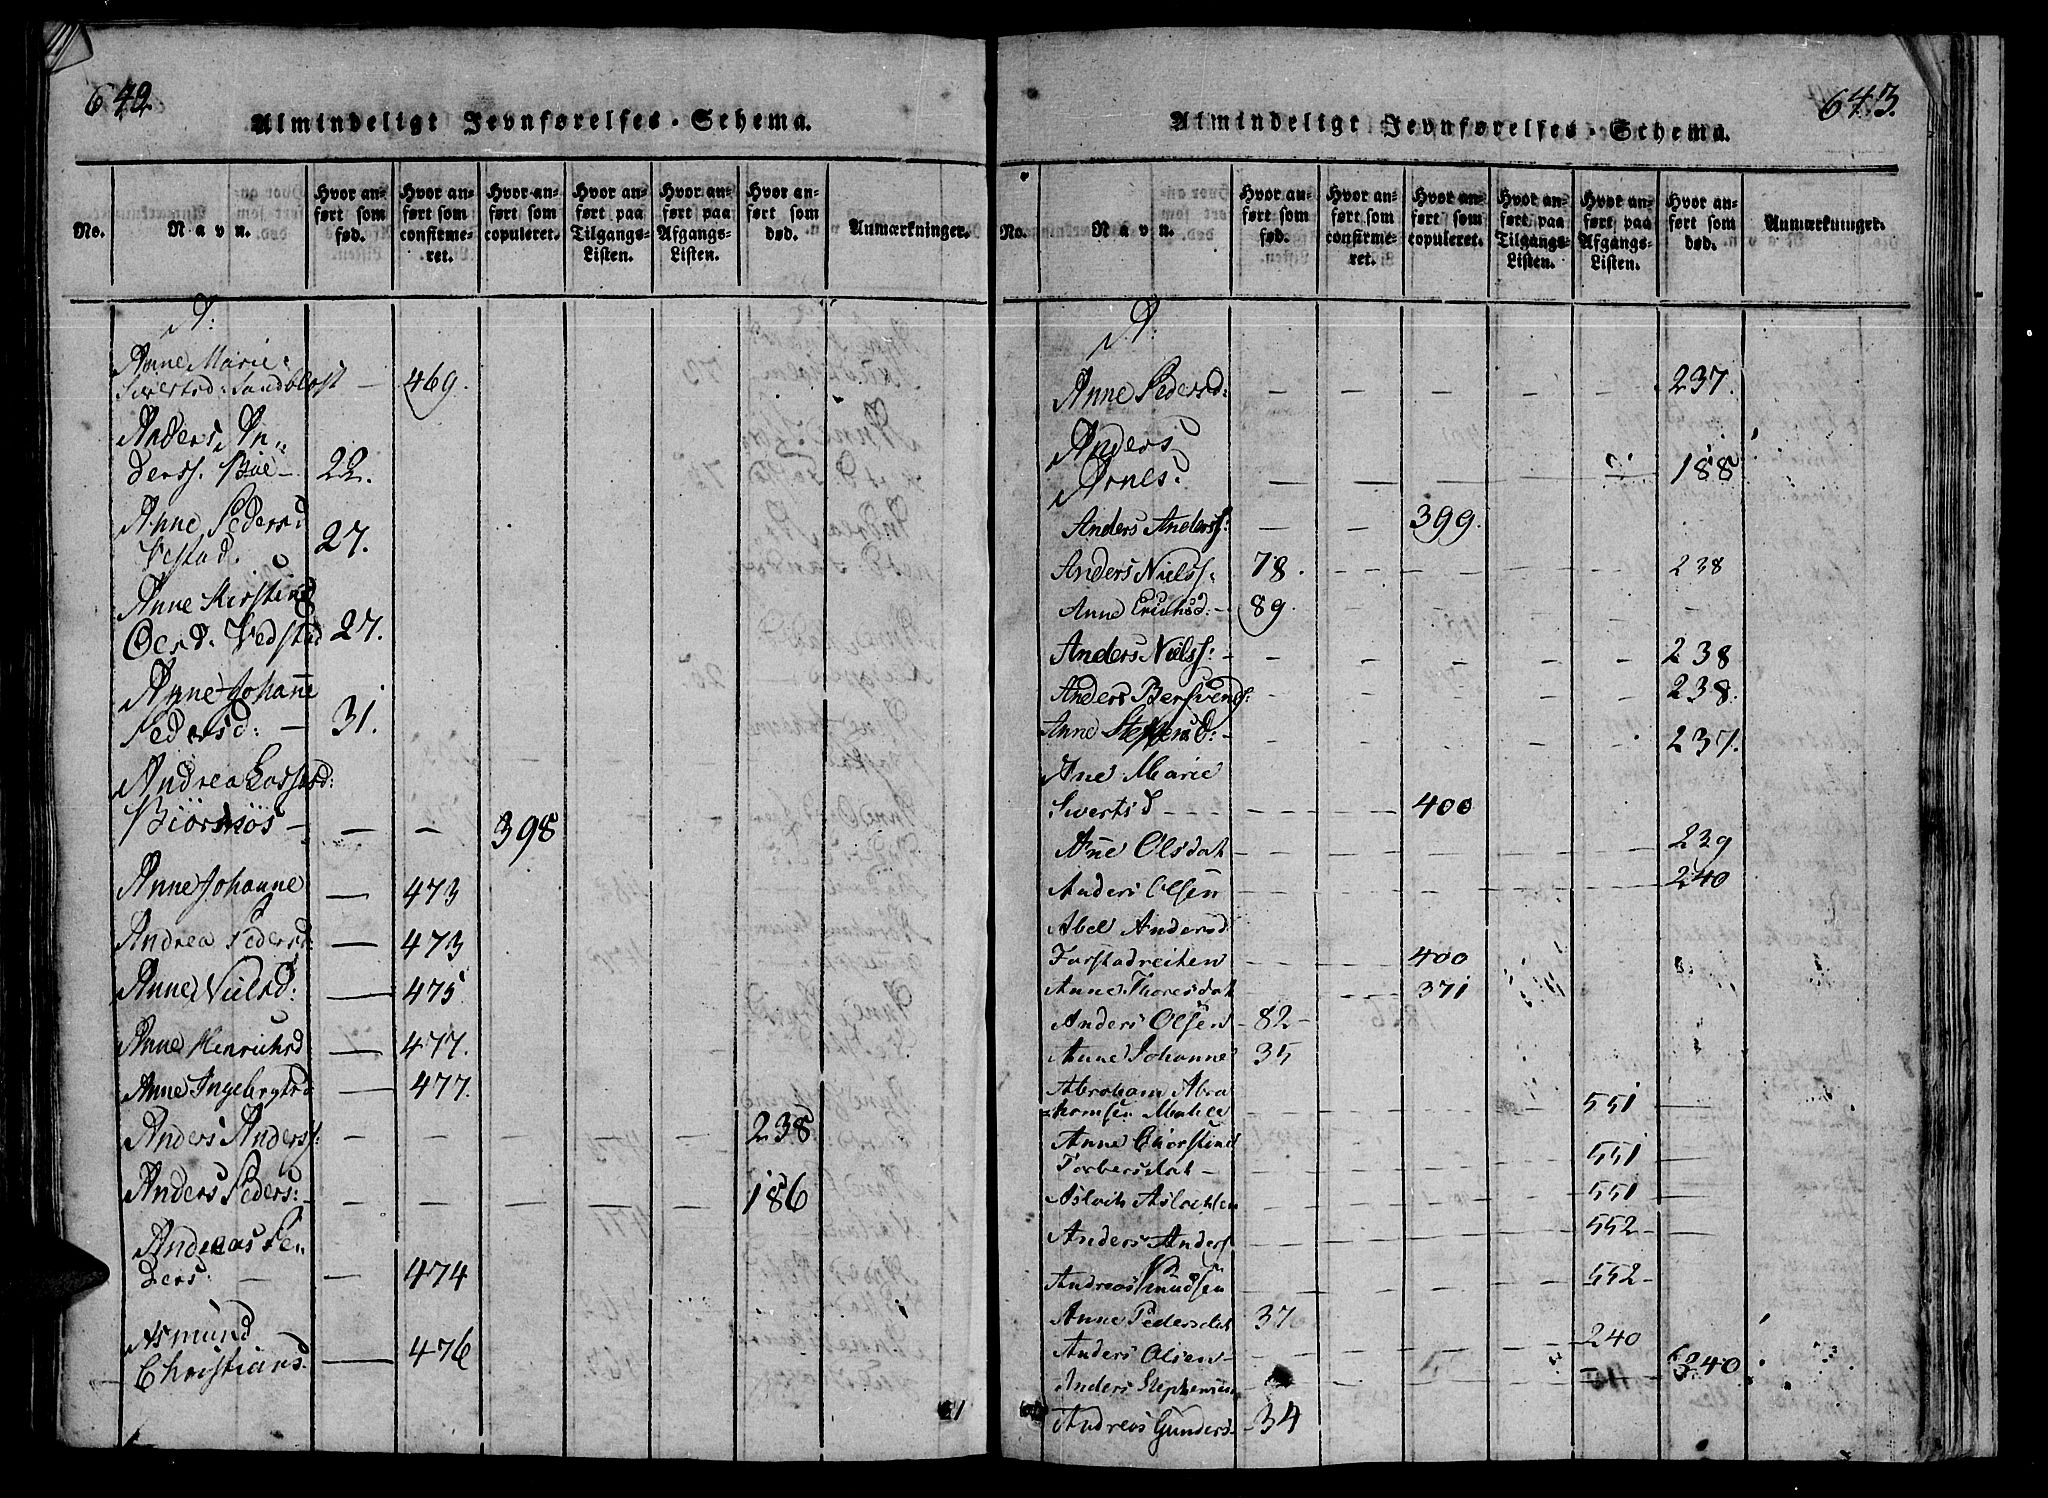 642.
Almindeligt Jevnførelses-Schema.
No.
Navn.
Hvor anført som fød.
Hvor anført som confirmeret.
Hvor anført som copuleret.
Hvor anført paa Tilgangs-Listen.
Hvor anført paa Afgangs-Listen.
Hvor anført som død.
Anmærkninger.
A:
Anne Marie
Sivertsd: Sandblost — 469.
Anders An„
derss. Böe — 22.
Anne Pedersd
Vestad. 27.
Anne Kirstine
Oersd. Vedstad 27.
Anne Johañe
Pedersd: — 31.
Andrea Lassesd:
Biörsnös — — — 398
Anne Johanne — 473
Andrea Pedersd: — 473
Anne Nielsd: — 475
Anne Henrichsd — 477.
Anne Ingebrgtsd — 477.
Anders Anderss: — — — — — 238
Anders Peders: — — — — — 186
Andreas Pe„
ders. — — 474
Asmund
Christians. — 476
643.
Almindeligt Jevnførelses-Schema.
No.
Navn.
Hvor anført som fød.
Hvor anført som confirmeret.
Hvor anført som copuleret.
Hvor anført paa Tilgangs-Listen.
Hvor anført paa Afgangs-Listen.
Hvor anført som død.
Anmærkninger.
A:
Anne Pedersd: — — — — — 237.
Anders
Arnes: — — — — — 188
Anders Anderss: — — 399.
Anders Nielss: 78. — — — — 238
Anne Erichsd: — 89. — — — — —
Anders Nielss: — — — — — — 238
Anders Bersvends: 238.
Anne Steffensd: — 237.
Ane Marie
Sivertsd — — — — — 400
Añe Olsdat — — — — — — 239
Anders Olsen — — — — — 240
Abel Andersd
Farstadreiten — — 400
Anne Thoresdat — — 371
Anders Olsen — 82 —
Anne Johanne 35
Abraham Abra
hamsen Mahle — — — — 551 —
Anne Chirstine
Torbersdat — 551 —
Aslach Aslachsen — — — — 551 —
Anders Anders — — — — 552 —
Andreas Knudsen — — — — 552 —
Anne Pedersdat 37
Anders Olsen — — — — — 240
Anders Stephensen — — — — 240.
Andreas Gunders — 34